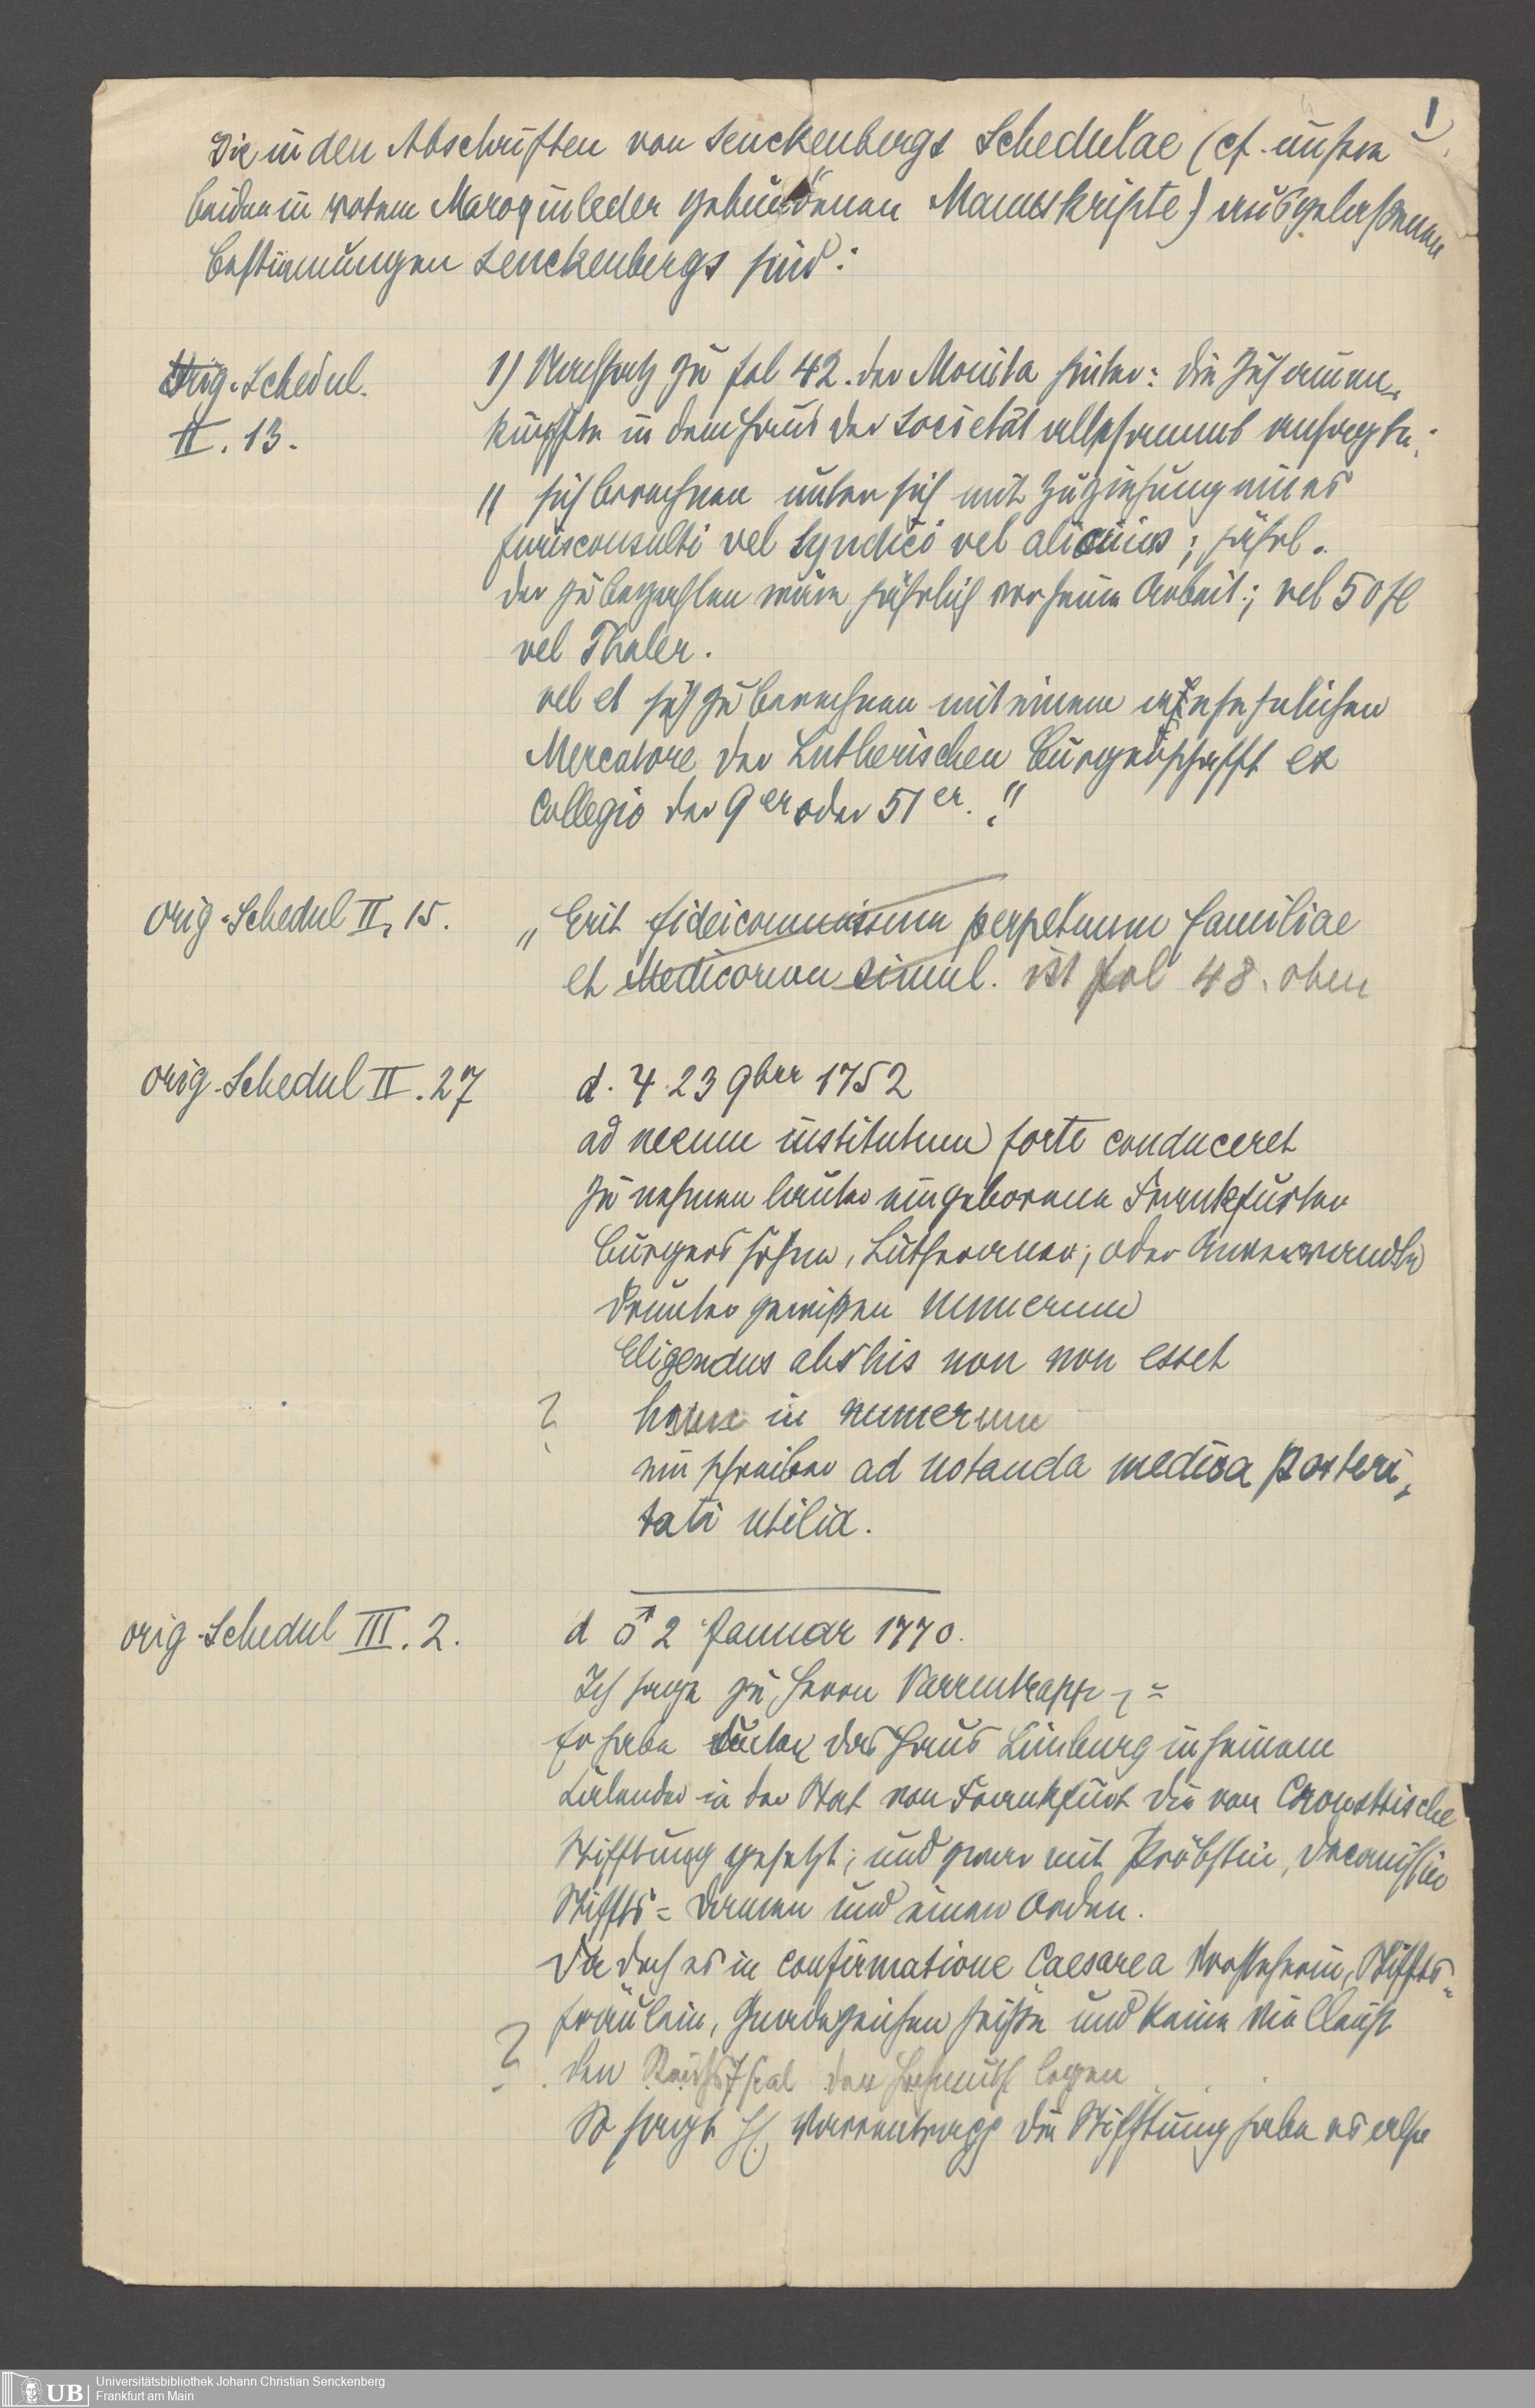 1
Die in den Abschriften von Senckenbergs Schedulae (cf. unsere
beiden in rotem Maroquinleder gebundenen Manuskripte) ausgelassenen
Bestimmungen Senckenbergs sind:
Orig. Schedul.
II. 13.
1) Nachsatz zu fol 42. der Monita hinter: die Zusammen-
künffte in dem Haus der Societät allesammt ansagte:
" sich berechnen unter sich mit Zuziehung eines
Jurisconsulti vel Syndici vel alicuius; jährl.
der zu bezahlen wäre jährlich vor seine Arbeit; vel 50 fl
vel Thaler.
vel et sich zu berechnen mit einem ansehnlichen
Mercatore der Lutherischen Burgerschafft ex
Collegio der 9er oder 51er."
orig. Schedul II, 15.
„Erit fideicommissum perpetuum familiae
et Medicorum simul. ist fol 48. oben
orig. Schedul II. 27
d. ♃ 23 9brr 1752
ad meum institutum forte conduceret
zu nehmen lauter eingeborene Frankfurter
Burgers söhne, Lutheraner; oder Anverwandte
drunter gewissen numerum
Eligendus abs his non non esset
? in numerum
ein schreiber ad notanda medica posteri-
tati utilia.
orig. Schedul III. 2.
d ♂ 2 Januar 1770.
Ich sage zu Herrn Varrentrapp =
Er habe das Haus Limburg in seinem
Calender in der Stat von Frankfurt die von Cronstettische
Stifftung gesetzt; und zwar mit Pröbstin, Decanissin
Stiffts= Damen und einen Orden.
Da doch es in confirmatione Caesarea Vorsteherin, Stiffts=
fräulein, Gnadezeichen heisse und keine
? den der Hochmuth legen
So sagt H. Varrentrapp die Stifftung habe es also
Universitätsbibliothek Johann Christian Senckenberg
Frankfurt am Main
UB